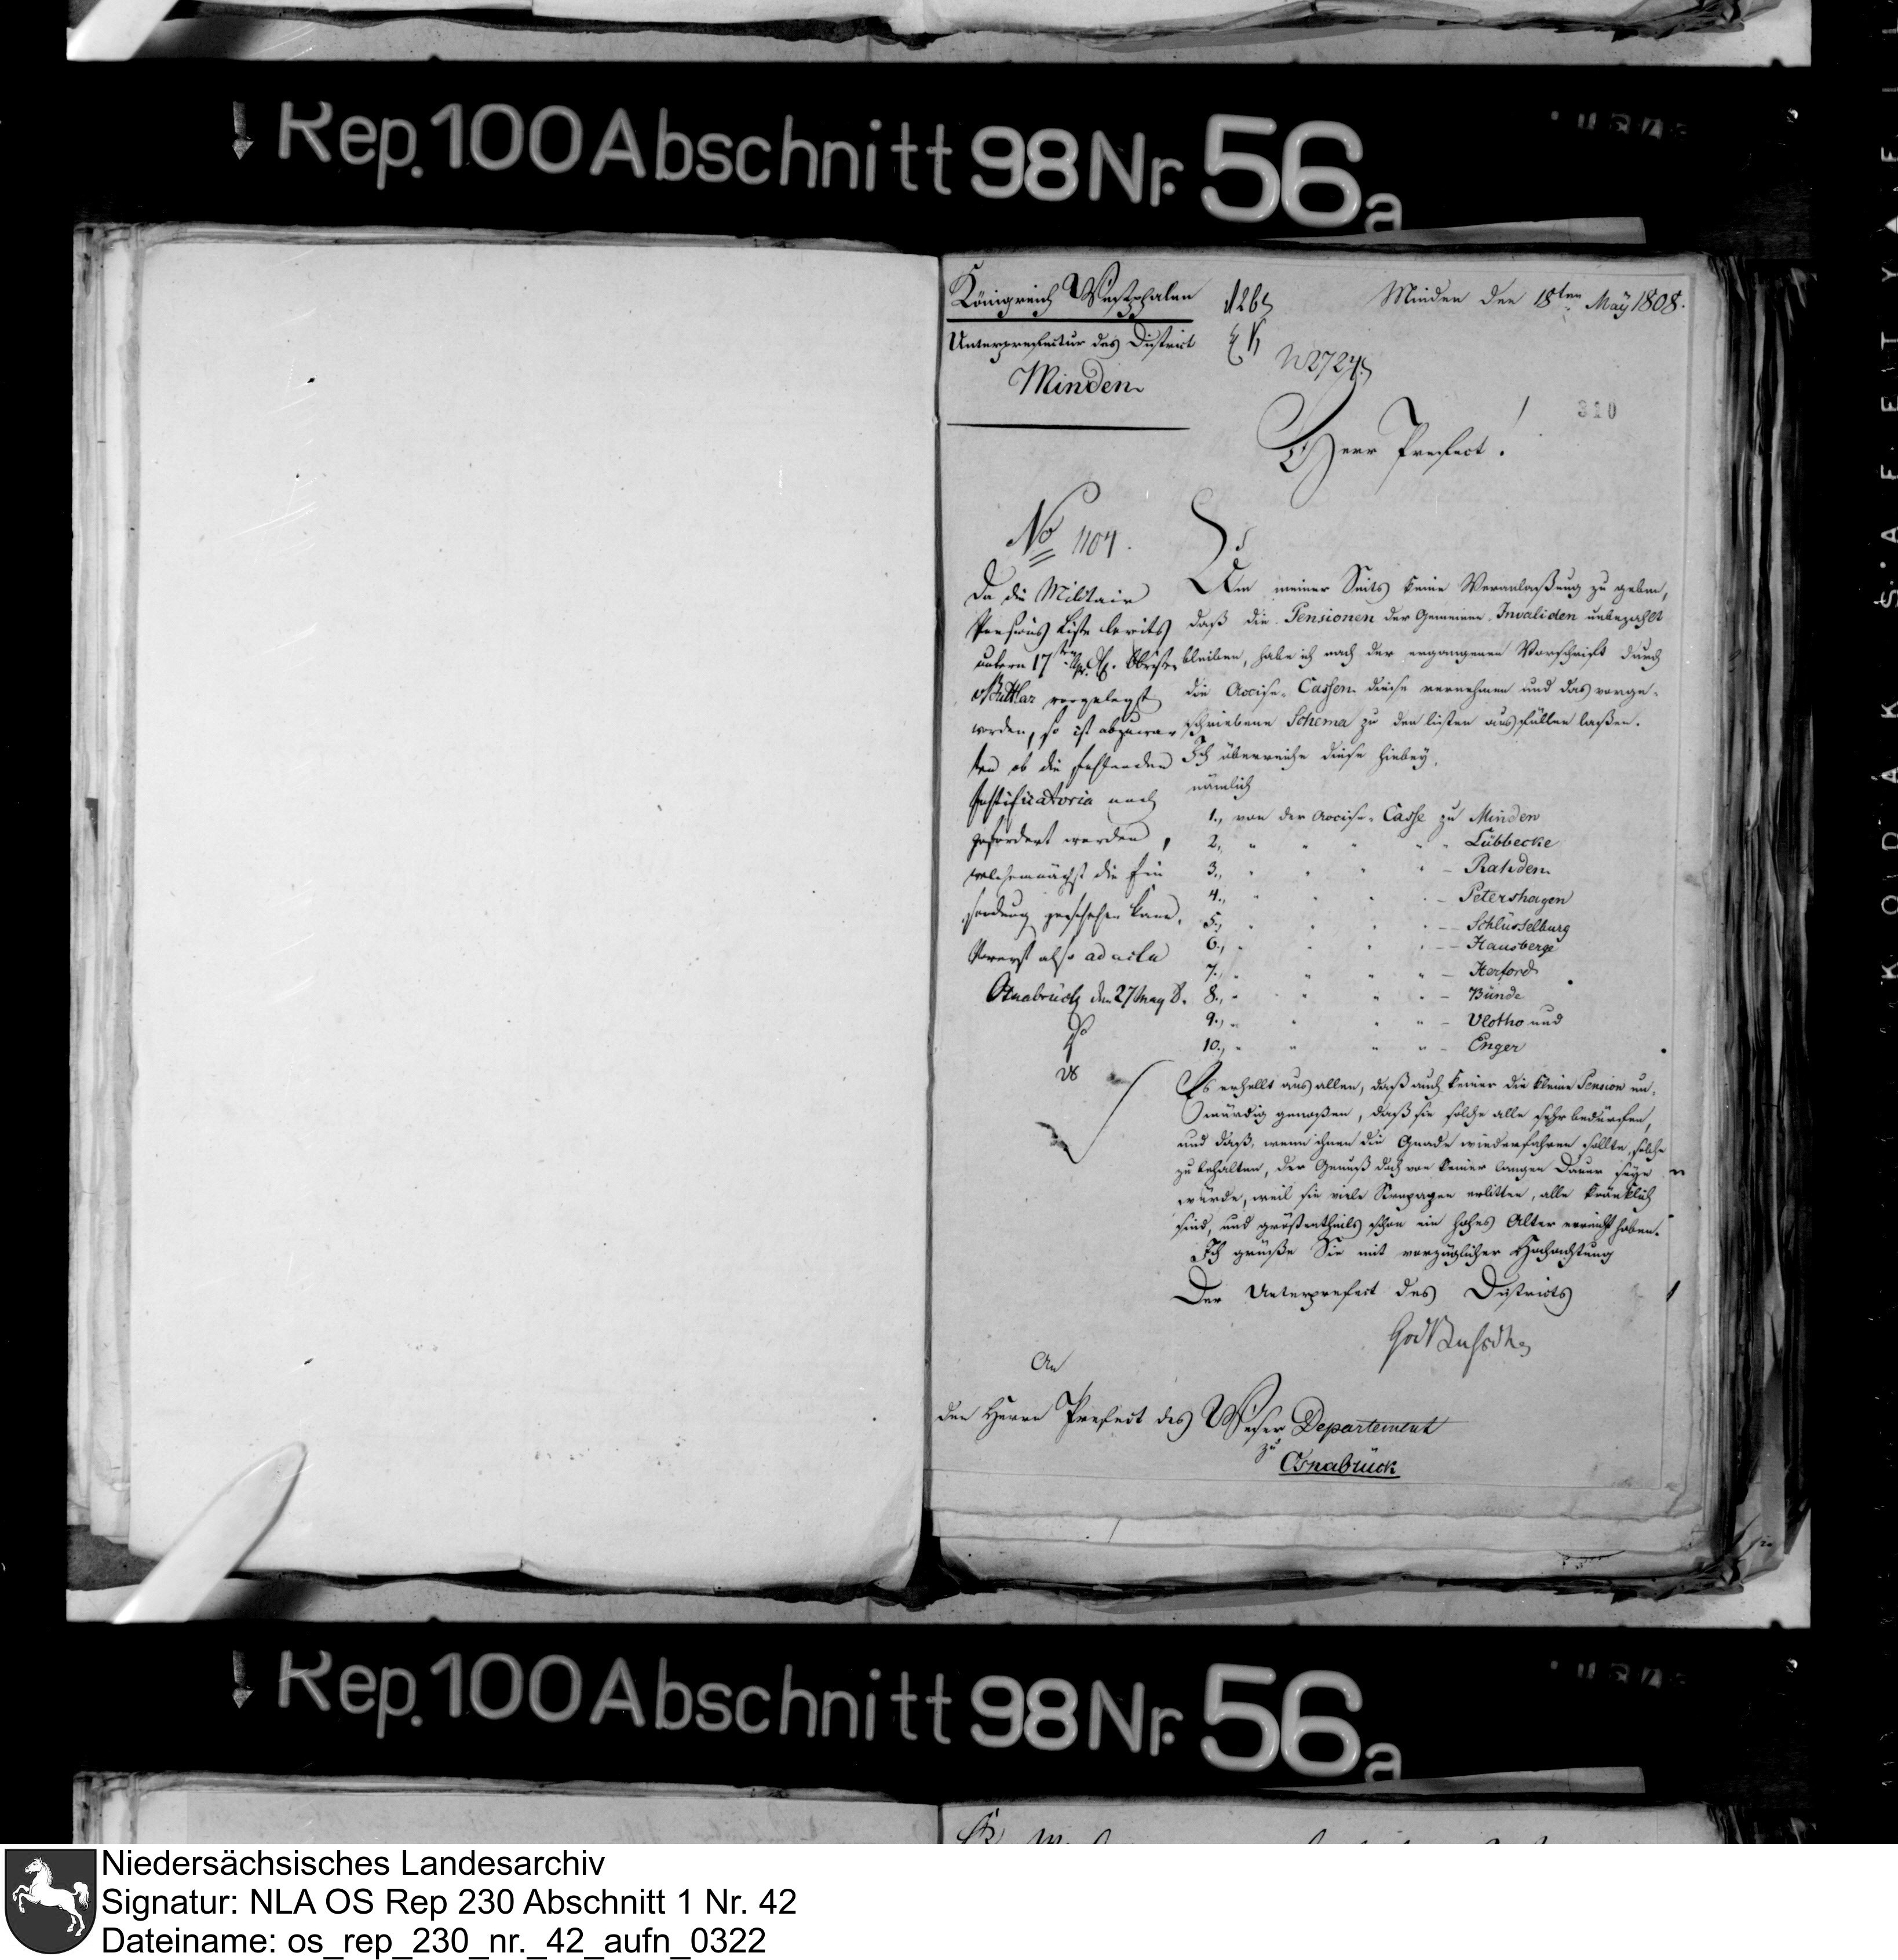 Rep. 100 Abschnitt 98 Nr. 56a
Königreich Westphalen
Unterprefectur des District
Minden
Minden den 18ten May 1808.
310
Herr Prefect!
No 1104.
Da die Militair
Pensions Liste bereits
unterm 17ten
vorgelegt
worden, so ist abzuwar
ten ob die fehlenden
Justificatoria noch
gefordert werden,
welchemnächst die Ein
sendung geschehen kann.
Vorerst also ad acta
Osnabrück den 27 May 8.
Um meiner Seits keine Veranlaßung zu geben,
daß die Pensionen der Gemeinen Invaliden unbezahlt
bleiben, habe ich nach der ergangenen Vorschrift durch
die Accise-Cassen diese vernehmen und das vorge-
schriebene Schema zu den listen ausfüllen laßen.
Ich überreiche diese hiebey,
nämlich
1., von der Accise-Casse zu Minden
2., " " " " " Lübbecke
3., " " " " - Rahden
4., " " " " - Petershagen
5., " " " " - Schlüsselburg
6., " " " " - Hausberge
7., " " " " - Herford
8., " " " " - Bünde
9., " " " " - Vlotho und
10., " " " " - Enger
Es erhellt aus allen, daß auch keiner die kleine Pension un-
würdig genoßen, daß sie solche alle sehr bedürfen,
und daß, wenn ihnen die Gnade wiederfahren sollte, solche
zu behalten, der Genuß doch von keiner langen Dauer seyn
würde, weil sie viele Strapazen erlitten, alle kränklich
sind, und größentheils schon ein hohes Alter erreicht haben.
Ich grüße Sie mit vorzüglicher Hochachtung
Der Unterprefect des Districts
An
den Herrn Prefect des Weser Departement
zu
Osnabrück
Rep. 100 Abschnitt 98 Nr. 56a
Niedersächsisches Landesarchiv
Signatur: NLA OS Rep 230 Abschnitt 1 Nr. 42
Dateiname: os_rep_230_nr._42_aufn_0322